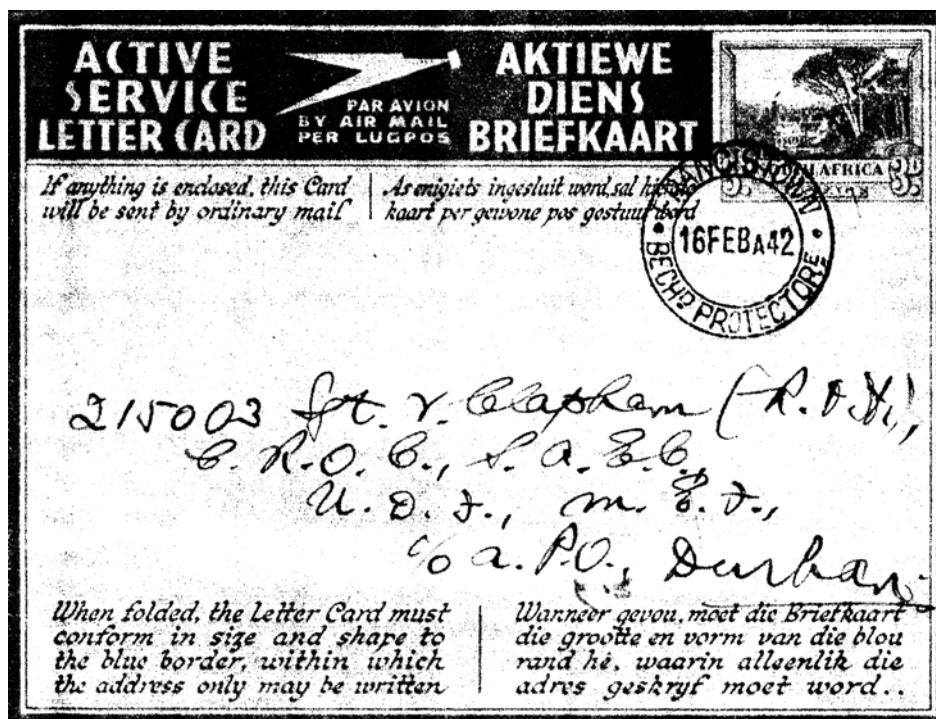 ACTIVE SERVICE LETTER CARD
PAR AVION
BY AIR MAIL
PER LUGPOS
AKTIEWE DIENS BRIEFKAART
AFRICA
If anything is enclosed, this Card
will be sent by ordinary mail
As enigiets ingesluit word, sal
kaart per gewone pos gestuur word
16FEBA42
BECHD PROTECTORE
215003 Sgt. V. Clapham
C. R. O. C., S. A. E. C.,
U. D. F., M. E. F.,
c/o A. P. O., Durban.
When folded, the Letter Card must
conform in size and shape to
the blue border, within which
the address only may be written
Wanneer gevou, moet die Briefkaart
die grootte en vorm van die blou
rand hê, waarin alleenlik die
adres geskryf moet word..